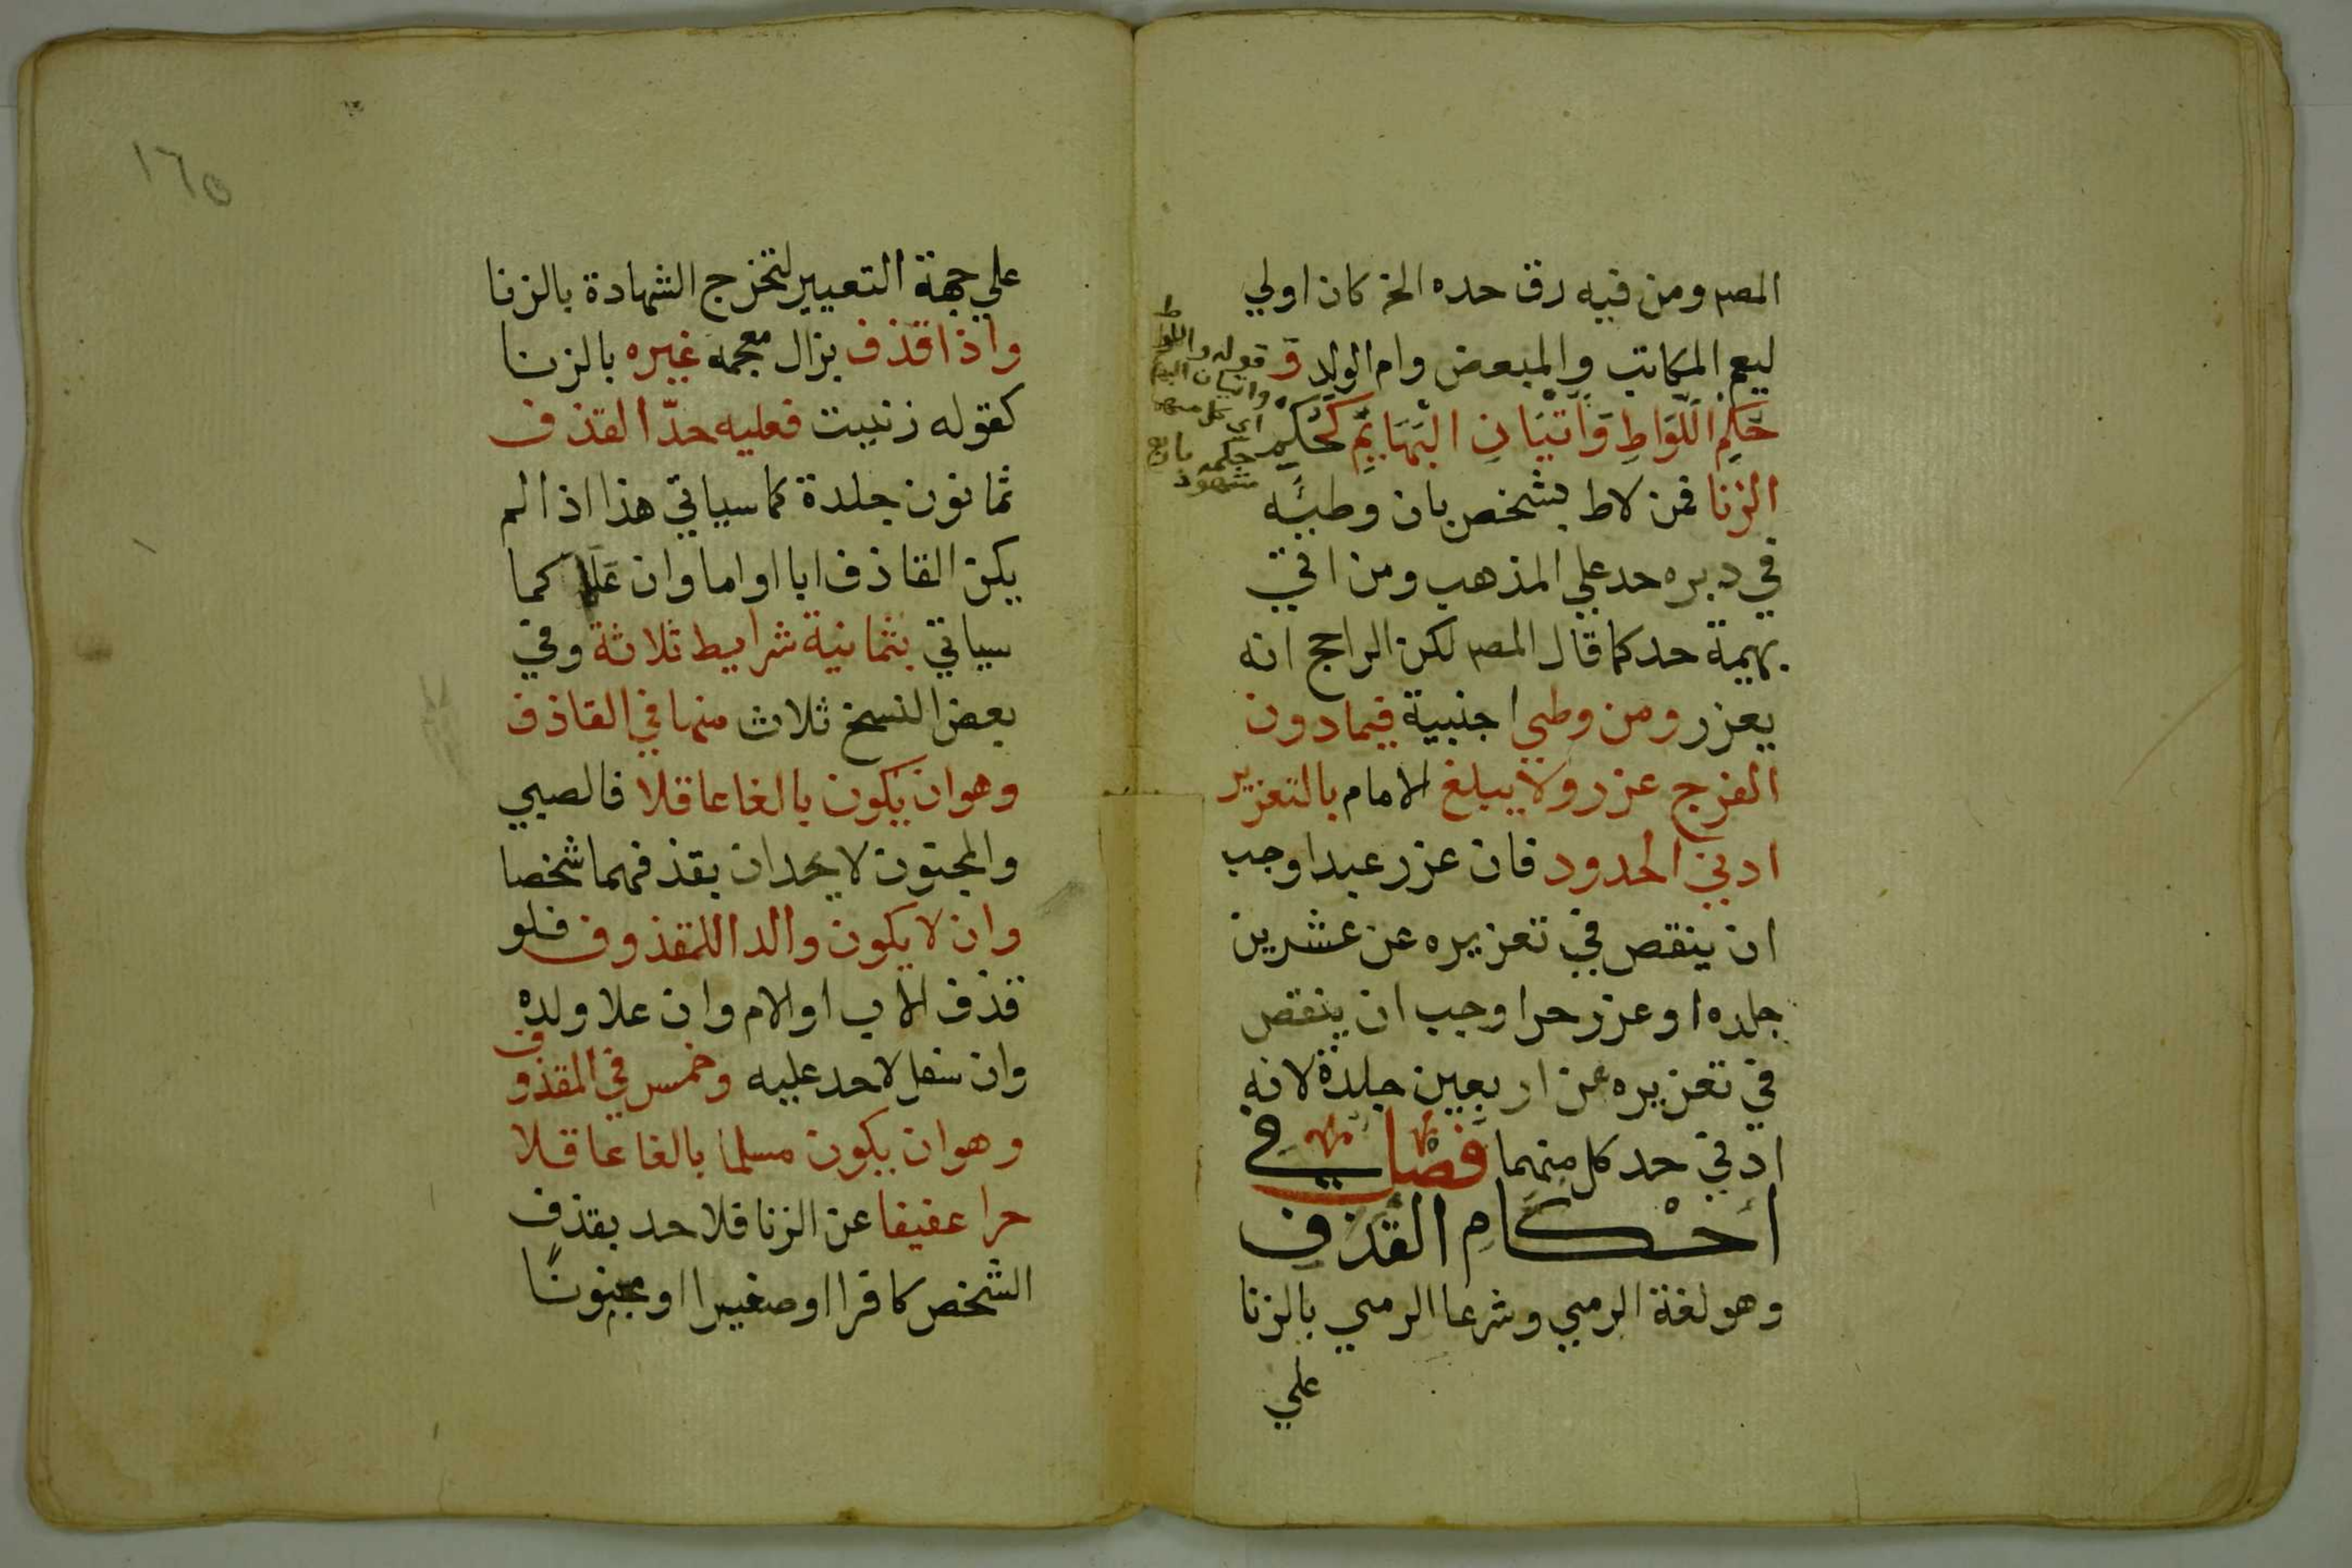 المصـ ومن فيه رق حده الخ كان اولي
ليعم المكاتب والمبعض وام الولد و
حكم اللواط واتيان البهايم كحكم
الزنا فمن لاط بشخص بان وطيه
في دبره حد علي المذهب ومن اتي
بهيمة حد كما قال المصـ لكن الراجح انه
يعزر ومن وطي اجنبية فيما دون
الفرج عزر ولا يبلغ الامام بالتعزير
ادني الحدود فان عزر عبدا وجب
ان ينقص في تعزيره عن عشرين
جلده او عزر حرا وجب ان ينقص
في تعزيره عن اربعين جلدة لانه
ادني حد كل منهما فصل في
احكام القذف
وهو لغة الرمي وشرعا الرمي بالزنا
علي
قوله واللواط
واتيان البهايم
اي كل منهما
حكمه
شهود
١٦٥
علي جهة التعيير لتخرج الشهادة بالزنا
واذا قذف بزال معجمه غيره بالزنا
كقوله زنيت فعليه حد القذف
ثمانون جلدة كما سياتي هذا اذا لم
يكن القاذف ابا او اما وان علا كما
سياتي بثمانية شرايط ثلاثة وفي
بعض النسخ ثلاث منها في القاذف
وهو ان يكون بالغا عاقلا فالصبي
والمجنون لا يحدان بقذفهما شخصا
وان لا يكون والدا للمقذوف فلو
قذف الاب او الام وان علا ولده
وان سفل لا حد عليه وخمس في المقذوف
وهو ان يكون مسلما بالغا عاقلا
حرا عفيفا عن الزنا فلا حد بقذف
الشخص كافرا او صغيرا او مجنونًا